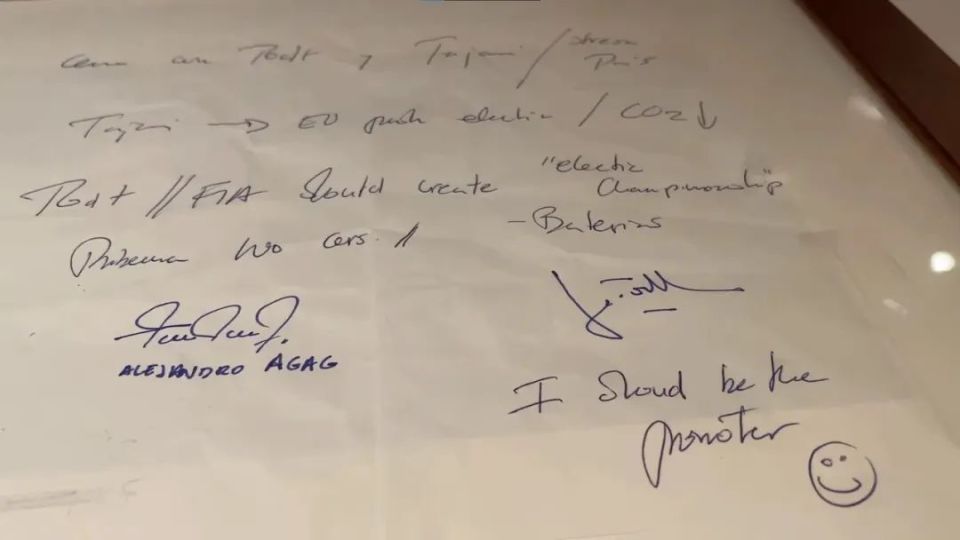 Cena con Todt y Tajani / Stresa
París
Tajani → EU push electric / CO2↓
Todt // FIA should create "electric
Championship"
Problema no cars.
- Baterías
ALEJANDRO AGAG
I should be the
promoter